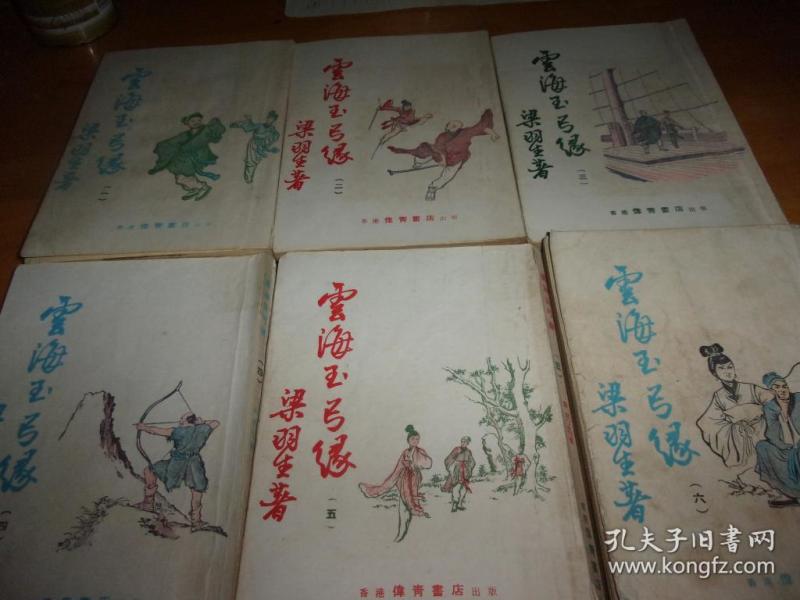 雲海玉弓緣
(一)
梁羽生著
香港偉青書店出版
雲海玉弓緣
(二)
梁羽生著
香港偉青書店出版
雲海玉弓緣
(三)
梁羽生著
香港偉青書店出版
雲海玉弓緣
(四)
雲海玉弓緣
(五)
梁羽生著
香港偉青書店出版
雲海玉弓緣
(六)
梁羽生著
香港偉
孔夫子旧书网
www.kongfz.com